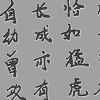 自幼曾攻
长成亦有
恰如猛虎